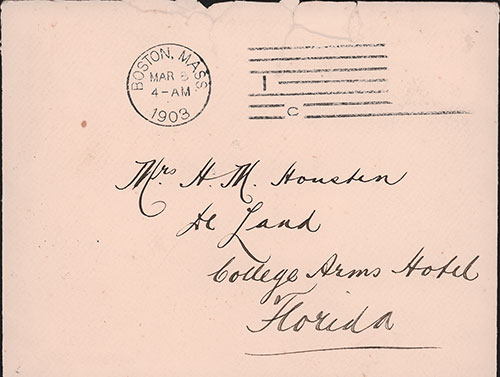 BOSTON, MASS.
MAR 5
4-AM
1903
1
C
Mrs H. M. Housten
De Land
College Arms Hotel
Florida